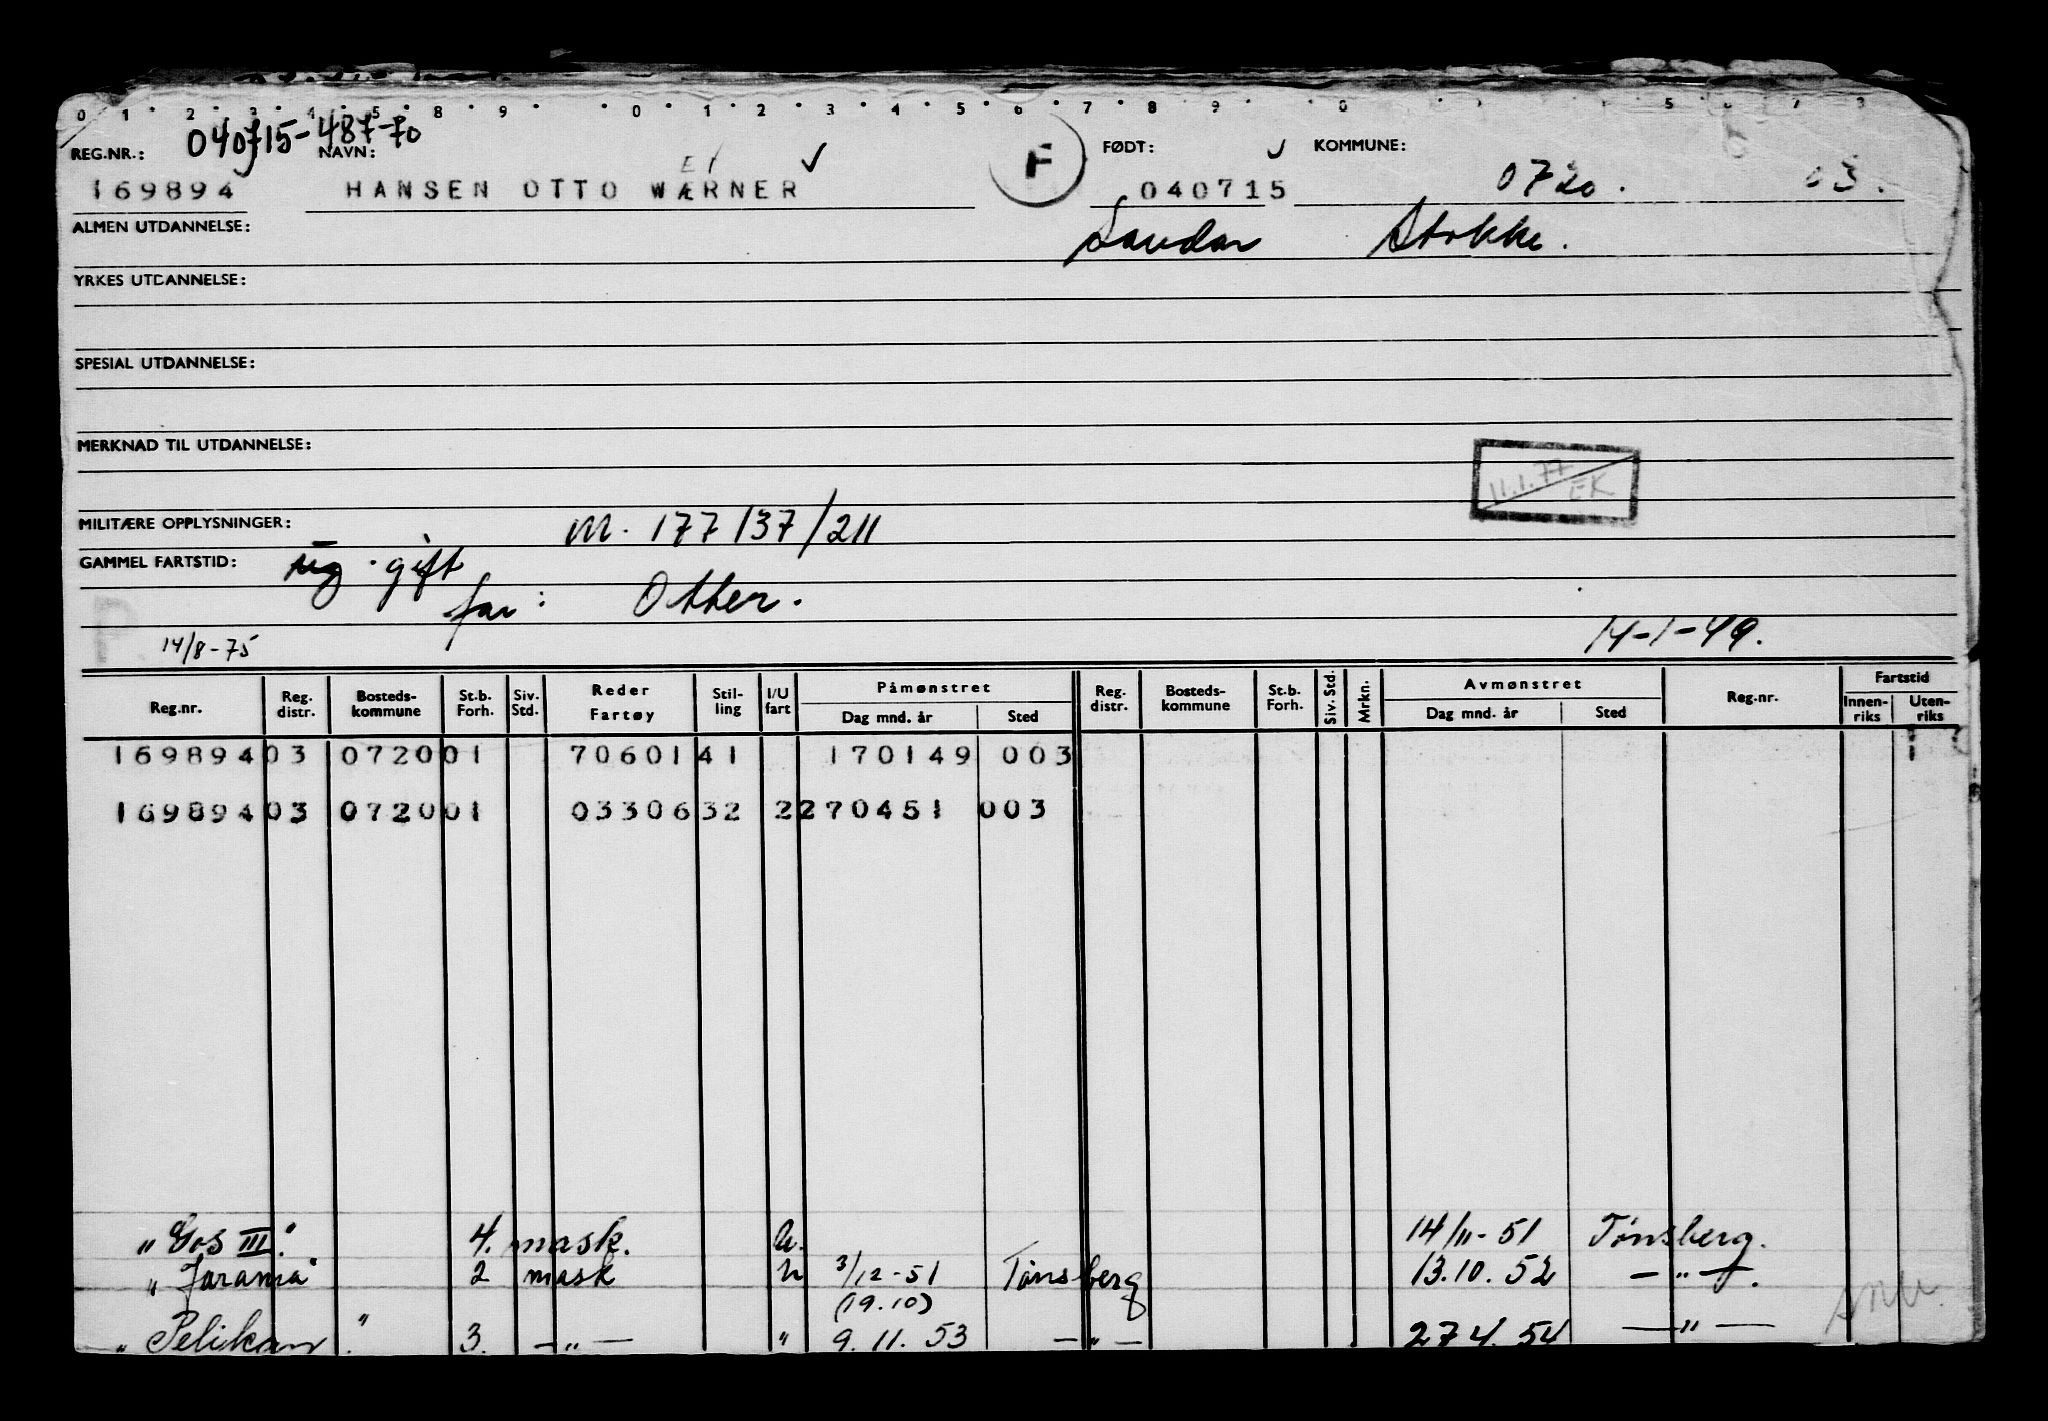 0 1 2 3 4 5 8 9 0 1 2 3 4 5 6 7 8 9 0 5 6 7 3
040715-487-70
REG.NR.: NAVN: FØDT: KOMMUNE:
169894 HANSEN OTTO WÆRNER F 040715 0720. 03.
ALMEN UTDANNELSE: Sandar Stokke.
YRKES UTDANNELSE:
SPESIAL UTDANNELSE:
MERKNAD TIL UTDANNELSE:
11.1.77 EK
MILITÆRE OPPLYSNINGER: M. 177137/211
GAMMEL FARTSTID: ug. gift
far: Otter.
P 14/8-75 14-1-49.
Reg.nr. Reg. distr. Bosteds-kommune St.b. Forh. Siv. Std. Reder Fartøy Stil-ling I/U fart Påmønstret Dag mnd. år Sted Reg. distr. Bosteds-kommune St.b. Forh. Siv. Std. Mrkn. Avmønstret Dag mnd. år Sted Reg.nr. Fartstid Innen-riks Uten-riks
169894 03 0720 01 70601 41 170149 003
169894 03 0720 01 03306 32 2 270451 003
"Gos III." 4. mask. U. 14/11-51 Tønsberg.
"Jarama" 2 mask U 3/12-51 Tønsberg 13.10.52 —"—.
(19.10)
"Pelikan" 3. —"— " 9.11.53 —"— 27.4.54 —"—